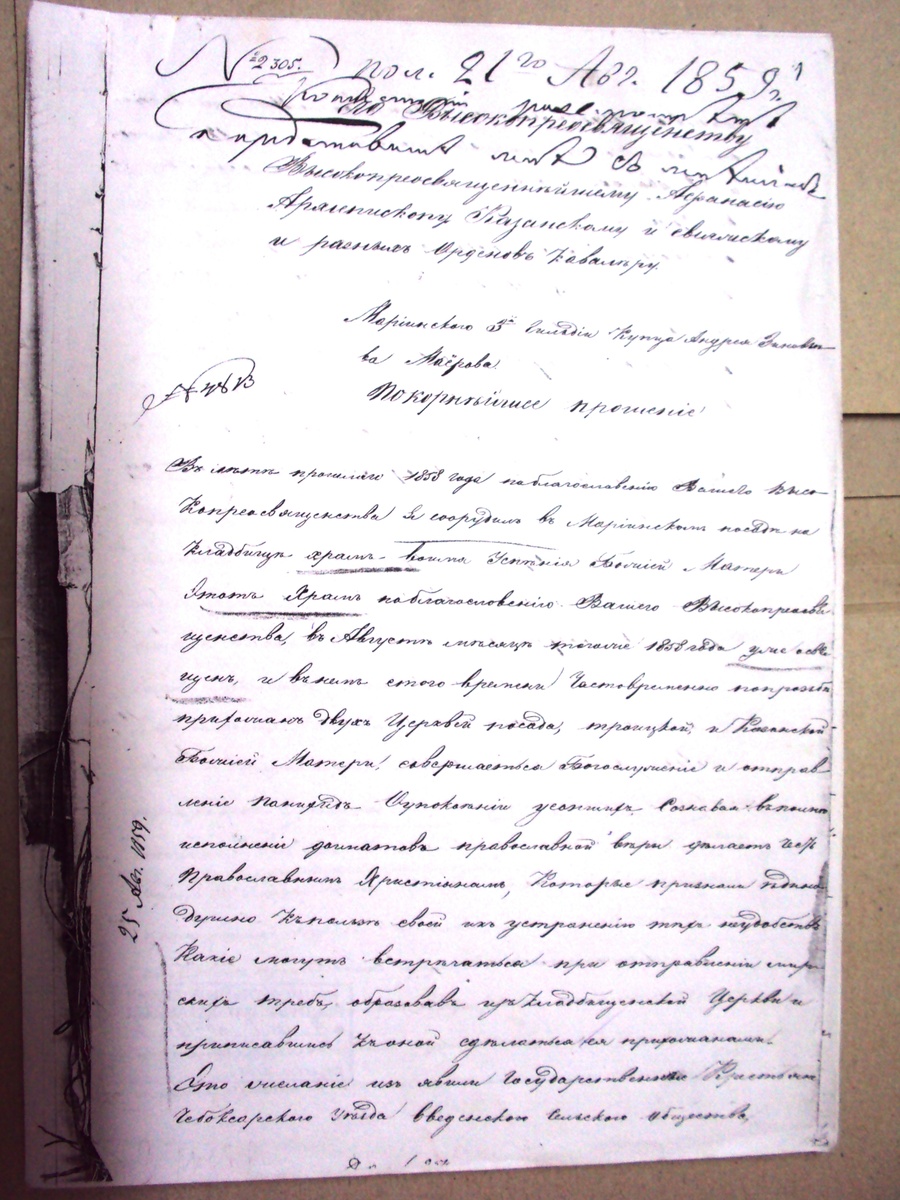 № 2305. пол. 21го Авг. 1859 г.
Его Высокопреосвященству
и представить мнѣ съ
Высокопреосвященнѣйшему Афанасію
Архіепископу Казанскому и Свіяжскому
и разныхъ Орденовъ Кавалеру.
Маріинскаго 3й гильдіи Купца Андрея Зиновье
ва Маёрова
Покорнѣйшее прошеніе
Въ лѣтѣ прошлаго 1858 года по благославенію Вашего Высо
копреосвященства я соорудилъ въ Маріинскомъ посадѣ на
кладбищѣ храмъ во имя Успѣнія Божіей Матери
Этотъ Храмъ по благословенію Вашего Высокопреосвя
щенства, въ Августѣ мѣсяцѣ тогоже 1858 года уже освя
щенъ, и въ немъ стого времени частовременно попрозьбѣ
прихожанъ двухъ Церквей посада, троицкой, и Казанской
Божіей Матери, совершаеться Богослуженіе и отправ
леніе панифидъ Оупокоѣніи усопшихъ. Сознавая вполнѣ
исполненіи догматовъ православной вѣры дѣлаетъ честь
Православнымъ Христіянамъ, Которые признали едино
душно къ пользѣ своей и къ устраненію тѣхъ неудобствъ
Какіе могутъ встрѣчаться при отправленіи мир
скихъ требъ, образовавъ изъ Кладбищенской Церкви и
приписавшись къ оной сдѣлаться ея прихожанами.
Это желаніе изъявили Государственные Крестьяне
Чебоксарского Уѣзда Введенского Сельского общества,
25 Авг. 1859.